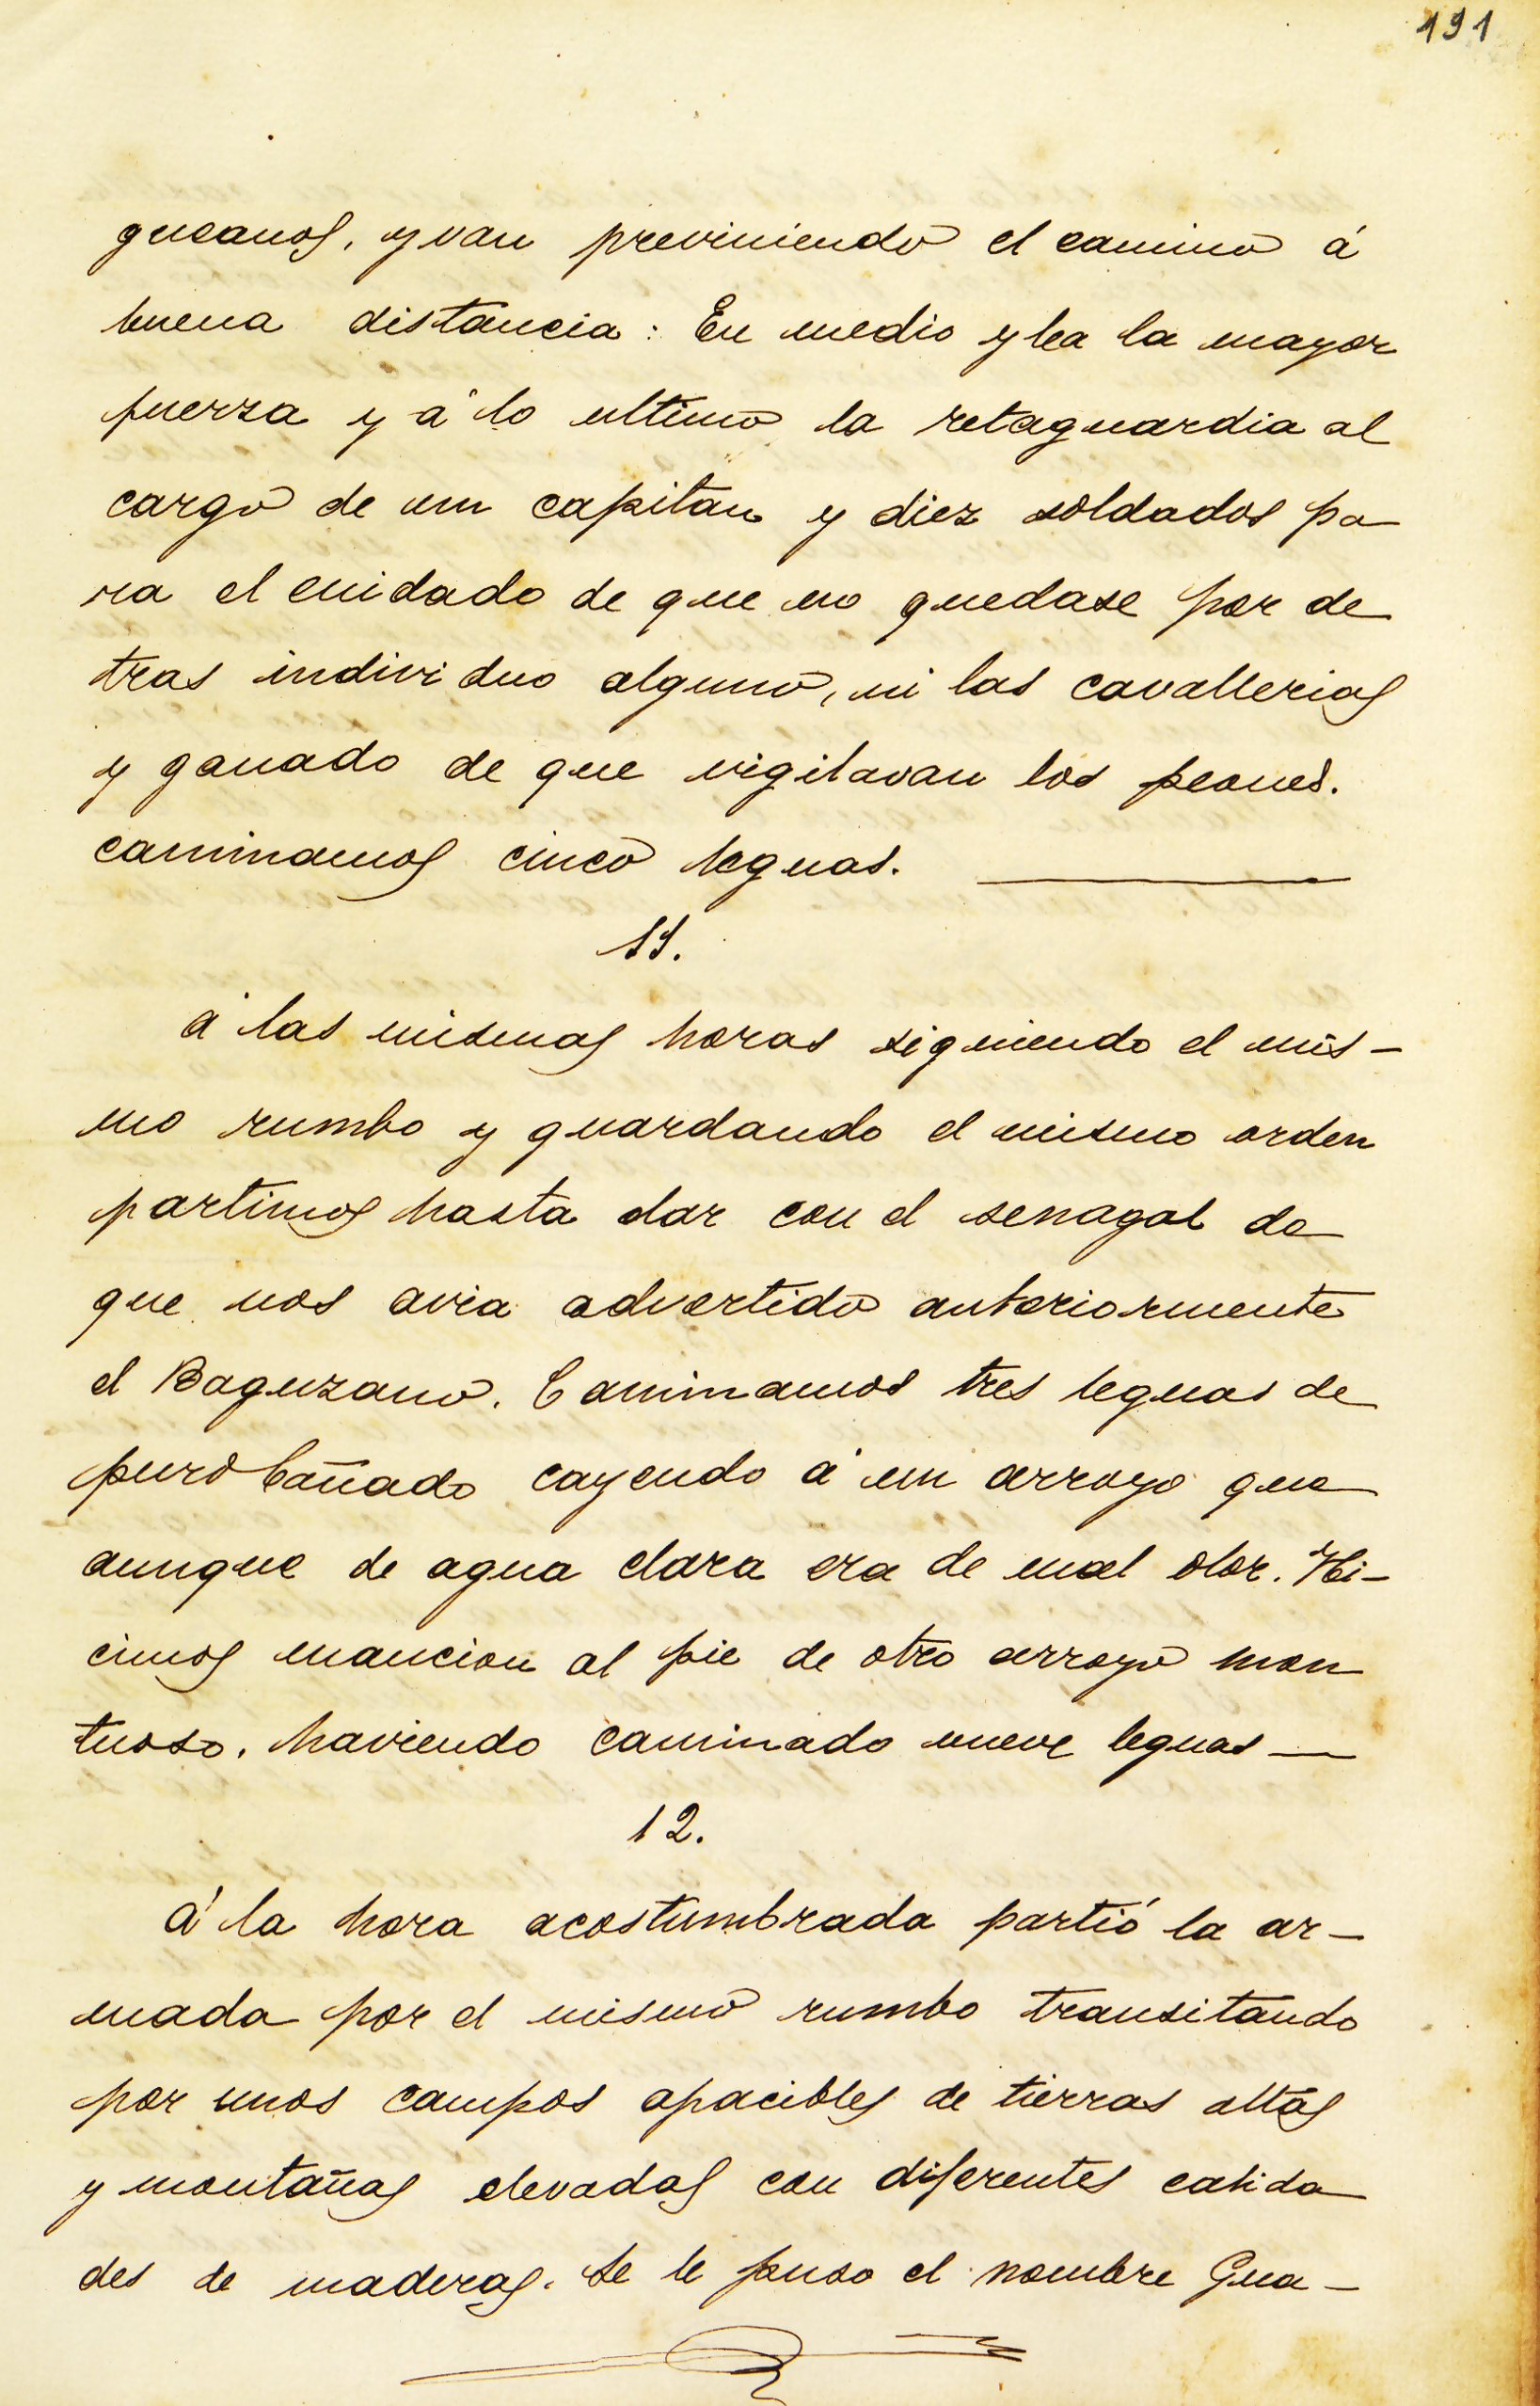 191
gueanos, y van previniendo el camino á
buena distancia: En medio yba la mayor
fuerza y á lo ultimo la retaguardia al
cargo de un capitan y diez soldados pa
ra el cuidado de que no quedase por de
tras individuo alguno, ni las cavallerias
y ganado de que vigilavan los peones.
caminamos cinco leguas. —
11.
á las mismas horas siguiendo el mis-
mo rumbo y guardando el mismo orden
partimos hasta dar con el senagal de
que nos avia advertido anteriormente
el Baguzano. Caminamos tres leguas de
puro Cañado cayendo á un arroyo que
aunque de agua clara era de mal olor. Hi-
cimos mancion al pie de otro arroyo mon
tuoso. haviendo caminado nueve leguas —
12.
á la hora acostumbrada partió la ar-
mada por el mismo rumbo transitando
por unos campos apacibles de tierras altas
y montañas elevadas con diferentes calida
des de maderas. se le puso el nombre Gua-